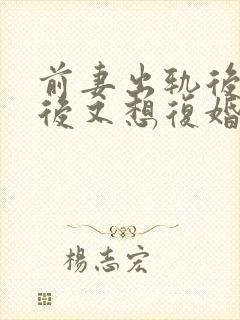 前妻出軌後
後又想復婚
楊志宏